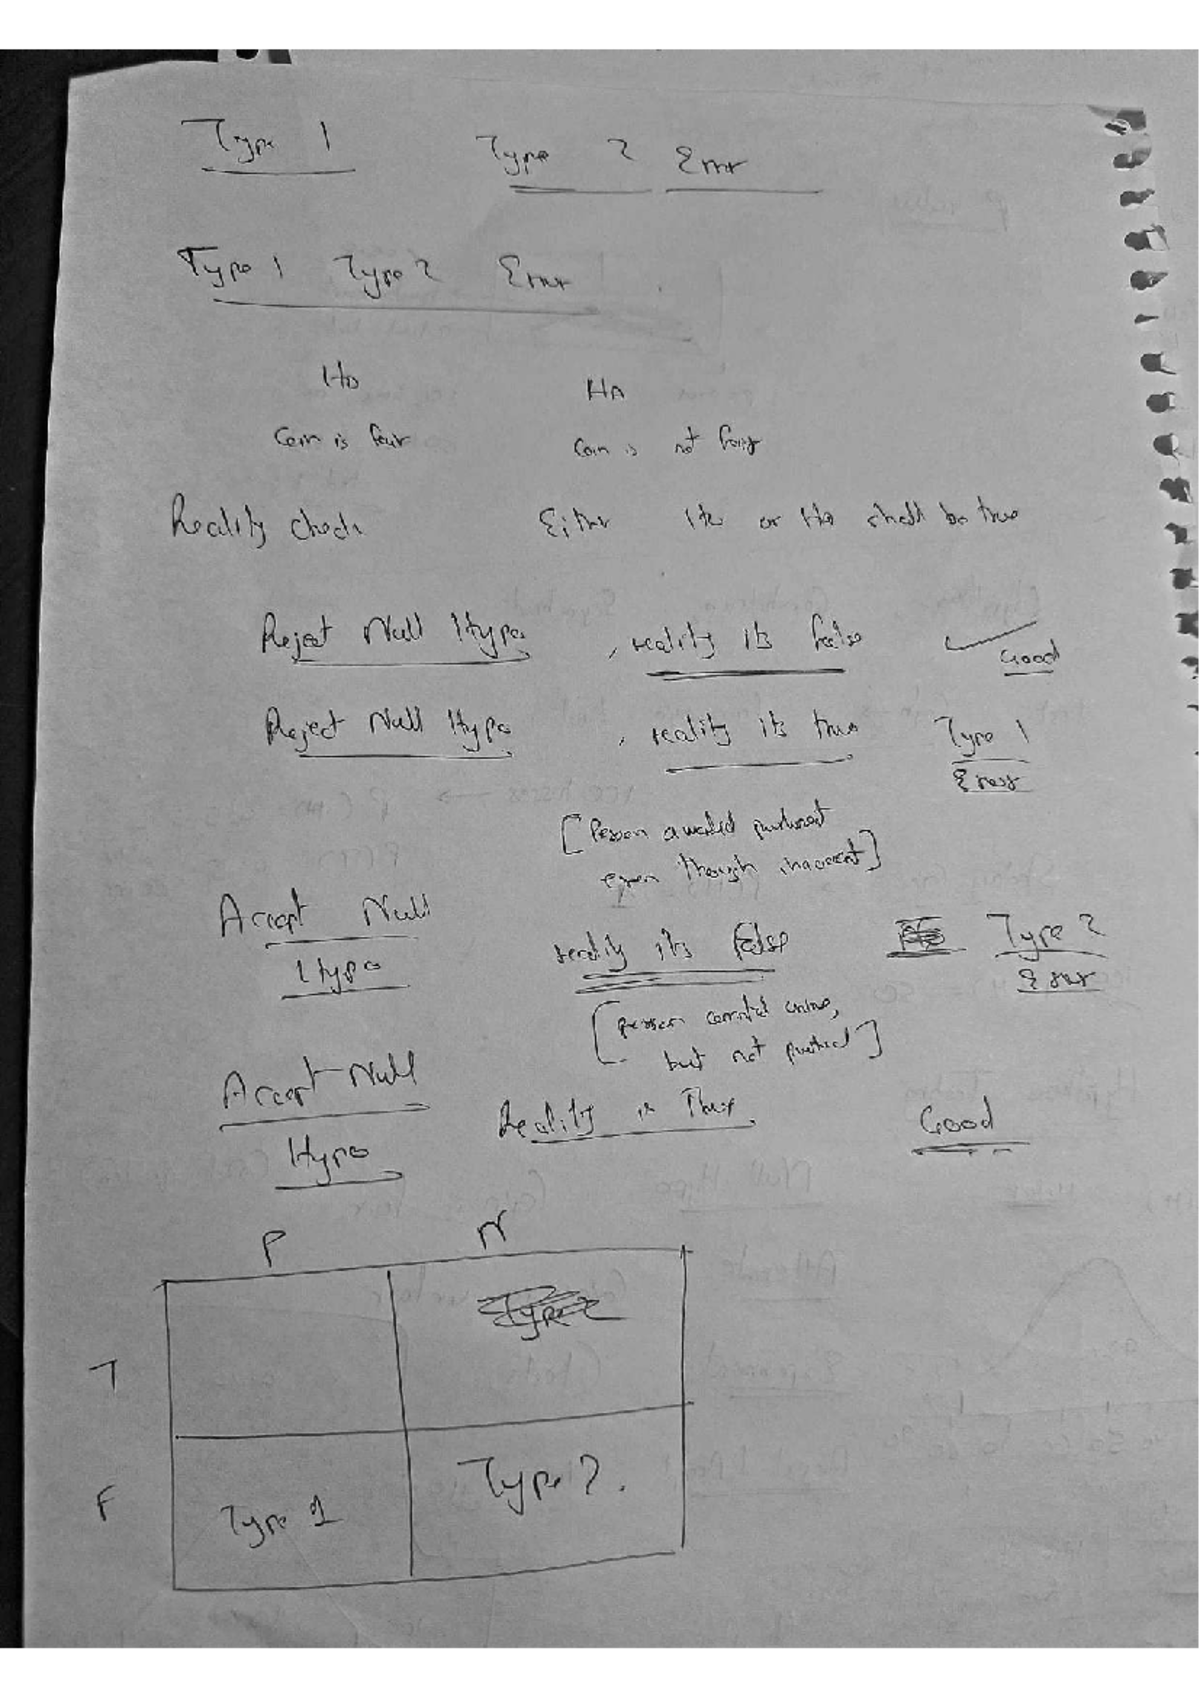 Type 1 Type 2 Error
Type 1 Type 2 Error
H0 HA
Coin is fair Coin is not fair
Reality check Either H0 or Ha shall be true
Reject Null Hypo, reality its false Good
Reject Null Hypo, reality its true Type 1
Error
[Person awarded
even though innocent]
Accept Null reality its false Type 2
Hypo Error
[person commited crime,
but not punished]
Accept Null Reality is True Good
Hypo
P N
T
F Type 1 Type 2.